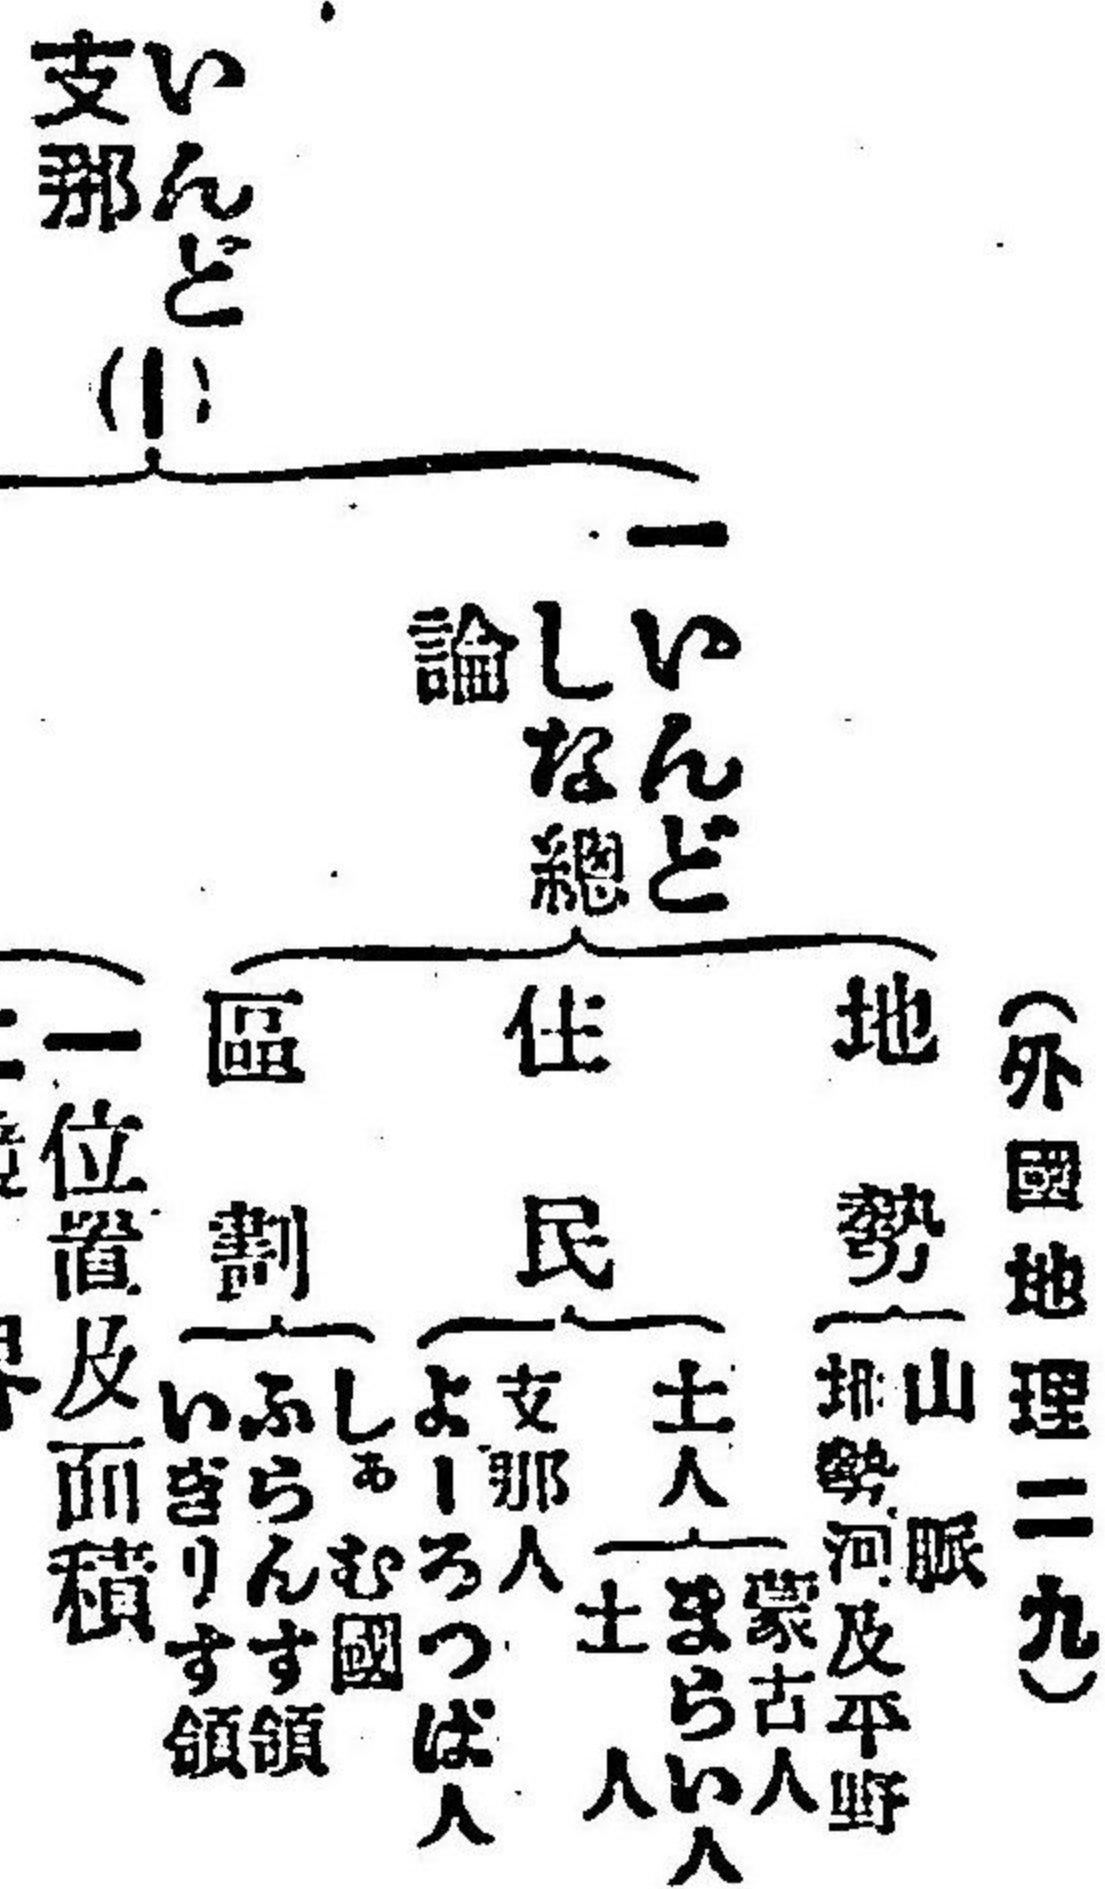 (外國地理二九)
いんど
支那
(一)
一
いんど
しな總
論
地勢
山脈
地勢河及平野
住民
土人
蒙古人
まらい人
土人
支那人
よーろつぱ人
區劃
しぁむ國
ふらんす領
いぎりす領
一位置及面積